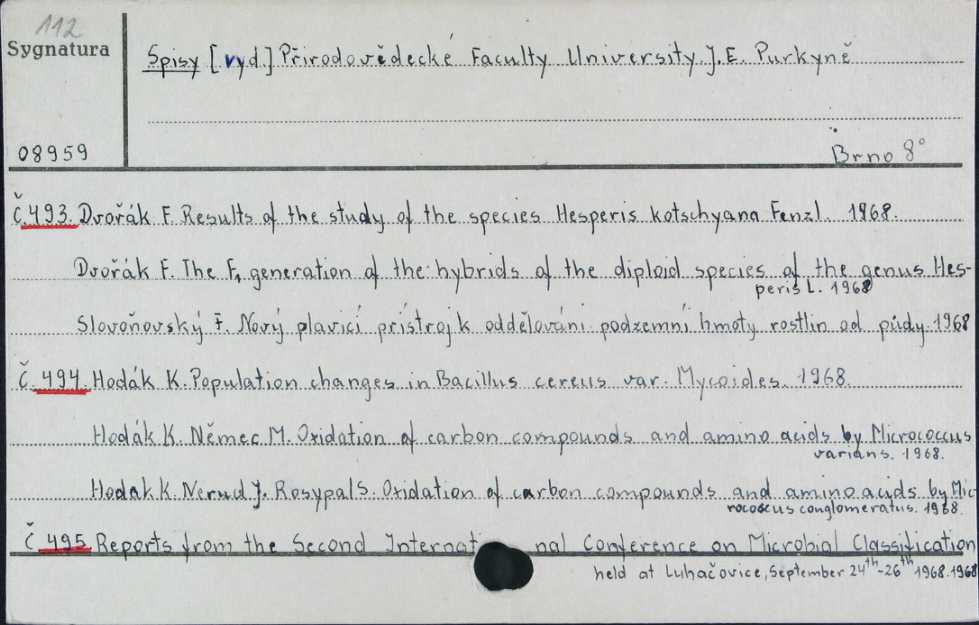 112
Sygnatura
Spisy [vyd.] Přírodovědecké Faculty University J.E. Purkyně
08959
Brno 8°
Č.493. Dvořák F. Results of the study of the species Hesperis kotschyana Fenzl. 1968.
Dvořák F. The F₁ generation of the hybrids of the diploid species of the genus Hes-
peris L. 1968
Slovoňovský F. Nový plavicí prístroj k oddělováni podzemní hmoty rostlin od půdy. 1968
Č. 494. Hodák K. Population changes in Bacillus cereus var. Mycoides. 1968.
Hodák K. Němec M. Oxidation of carbon compounds and amino acids by Micrococcus
varians. 1968.
Hodak K. Nerud J. Rosypal S. Oxidation of carbon compounds and amino acids by Mic-
rococcus conglomeratus. 1968.
Č 495 Reports from the Second Internat nal Conference on Microbial Classification
held at Luhačovice, September 24th-26th 1968. 1968